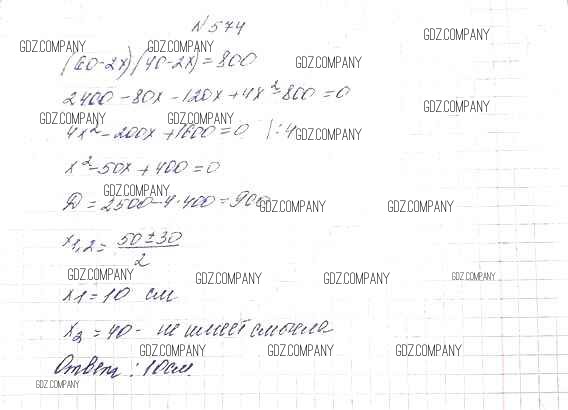 N 574
GDZ.COMPANY
GDZ.COMPANY GDZ.COMPANY
(60-2x)(40-2x)=800 GDZ.COMPANY
2400-80x-120x+4x²-800=0
GDZ.COMPANY
GDZ.COMPANY GDZ.COMPANY
4x²-200x+1600=0 |:4 GDZ.COMPANY
x²-50x+400=0
GDZ.COMPANY
D=2500-4·400=900
GDZ.COMPANY GDZ.COMPANY
x1,2= 50±30
2
GDZ.COMPANY GDZ.COMPANY GDZ.COMPANY GDZ.COMPANY
x1=10 см
x2=40- не имеет смысла
GDZ.COMPANY GDZ.COMPANY GDZ.COMPANY
Ответ: 10см.
GDZ.COMPANY